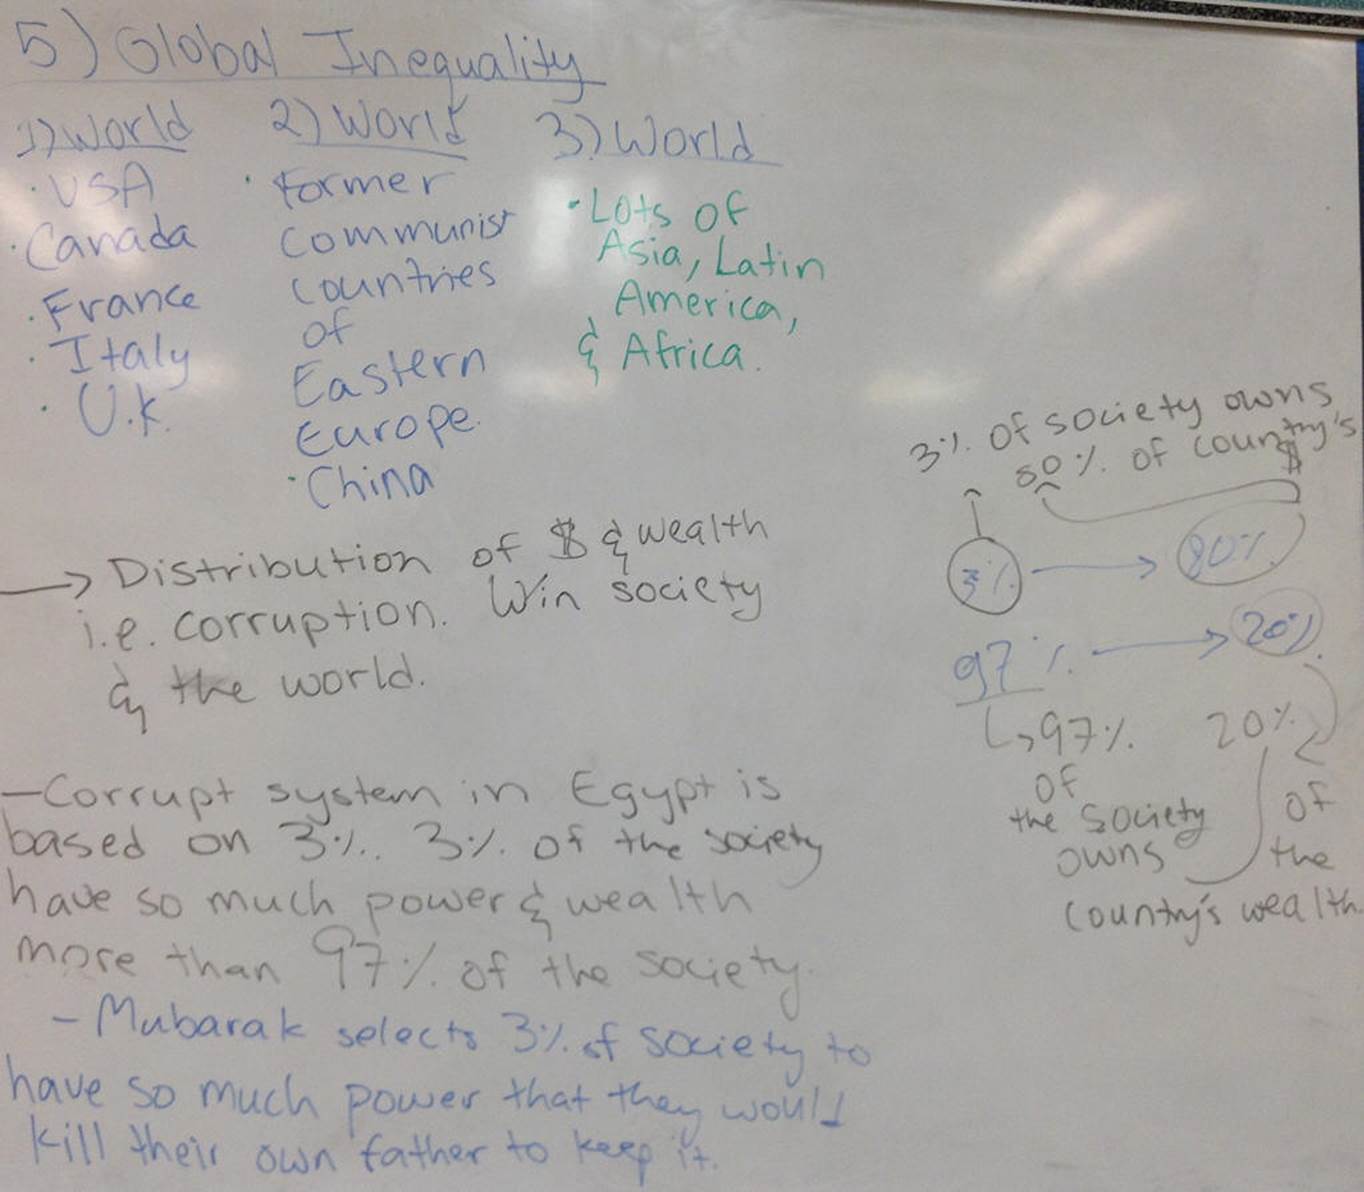 5) Global Inequality
1) World
· USA
· Canada
· France
· Italy
· U.K.
2) World
· Former
Communist
countries
of
Eastern
Europe.
· China
3) World
· Lots of
Asia, Latin
America,
& Africa.
→ Distribution of $ & wealth
i.e. corruption. W/in society
& the world.
- Corrupt system in Egypt is
based on 3%. 3% of the society
have so much power & wealth
more than 97% of the society.
- Mubarak selects 3% of society to
have so much power that they would
kill their own father to keep it.
3% of society owns
80% of country's
$
3% → 80%
97% → 20%
↳ 97%
of
the society
owns
20%
of
the
country's wealth.